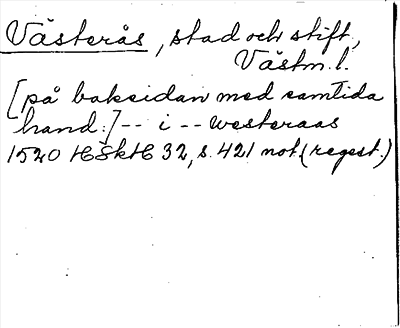 Västerås, stad och stift,
Västm. l.
[på baksidan med samtida
hand:] -- i -- westeraas
1520 HSkH 32, s. 421 not. (regest.)